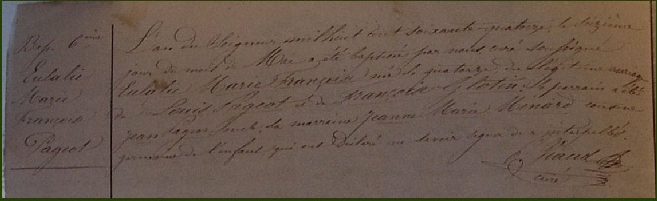 Bap. 6ème
Eulalie
Marie
françoise
Pageot
L'an du Seigneur mil huit cent soixante quatorze, le seizième
jour du mois de Mai a été baptisée par nous curé soussigné
Eulalie Marie Françoise née le quatorze du légitime mariage
de Louis Pageot et de Françoise Glotin, le parrain a été
jean pageot oncle, la marraine jeanne Marie Menard cousine
germaine de l'enfant, qui ont déclaré ne savoir signer de ce interpellés.
Riaud
curé